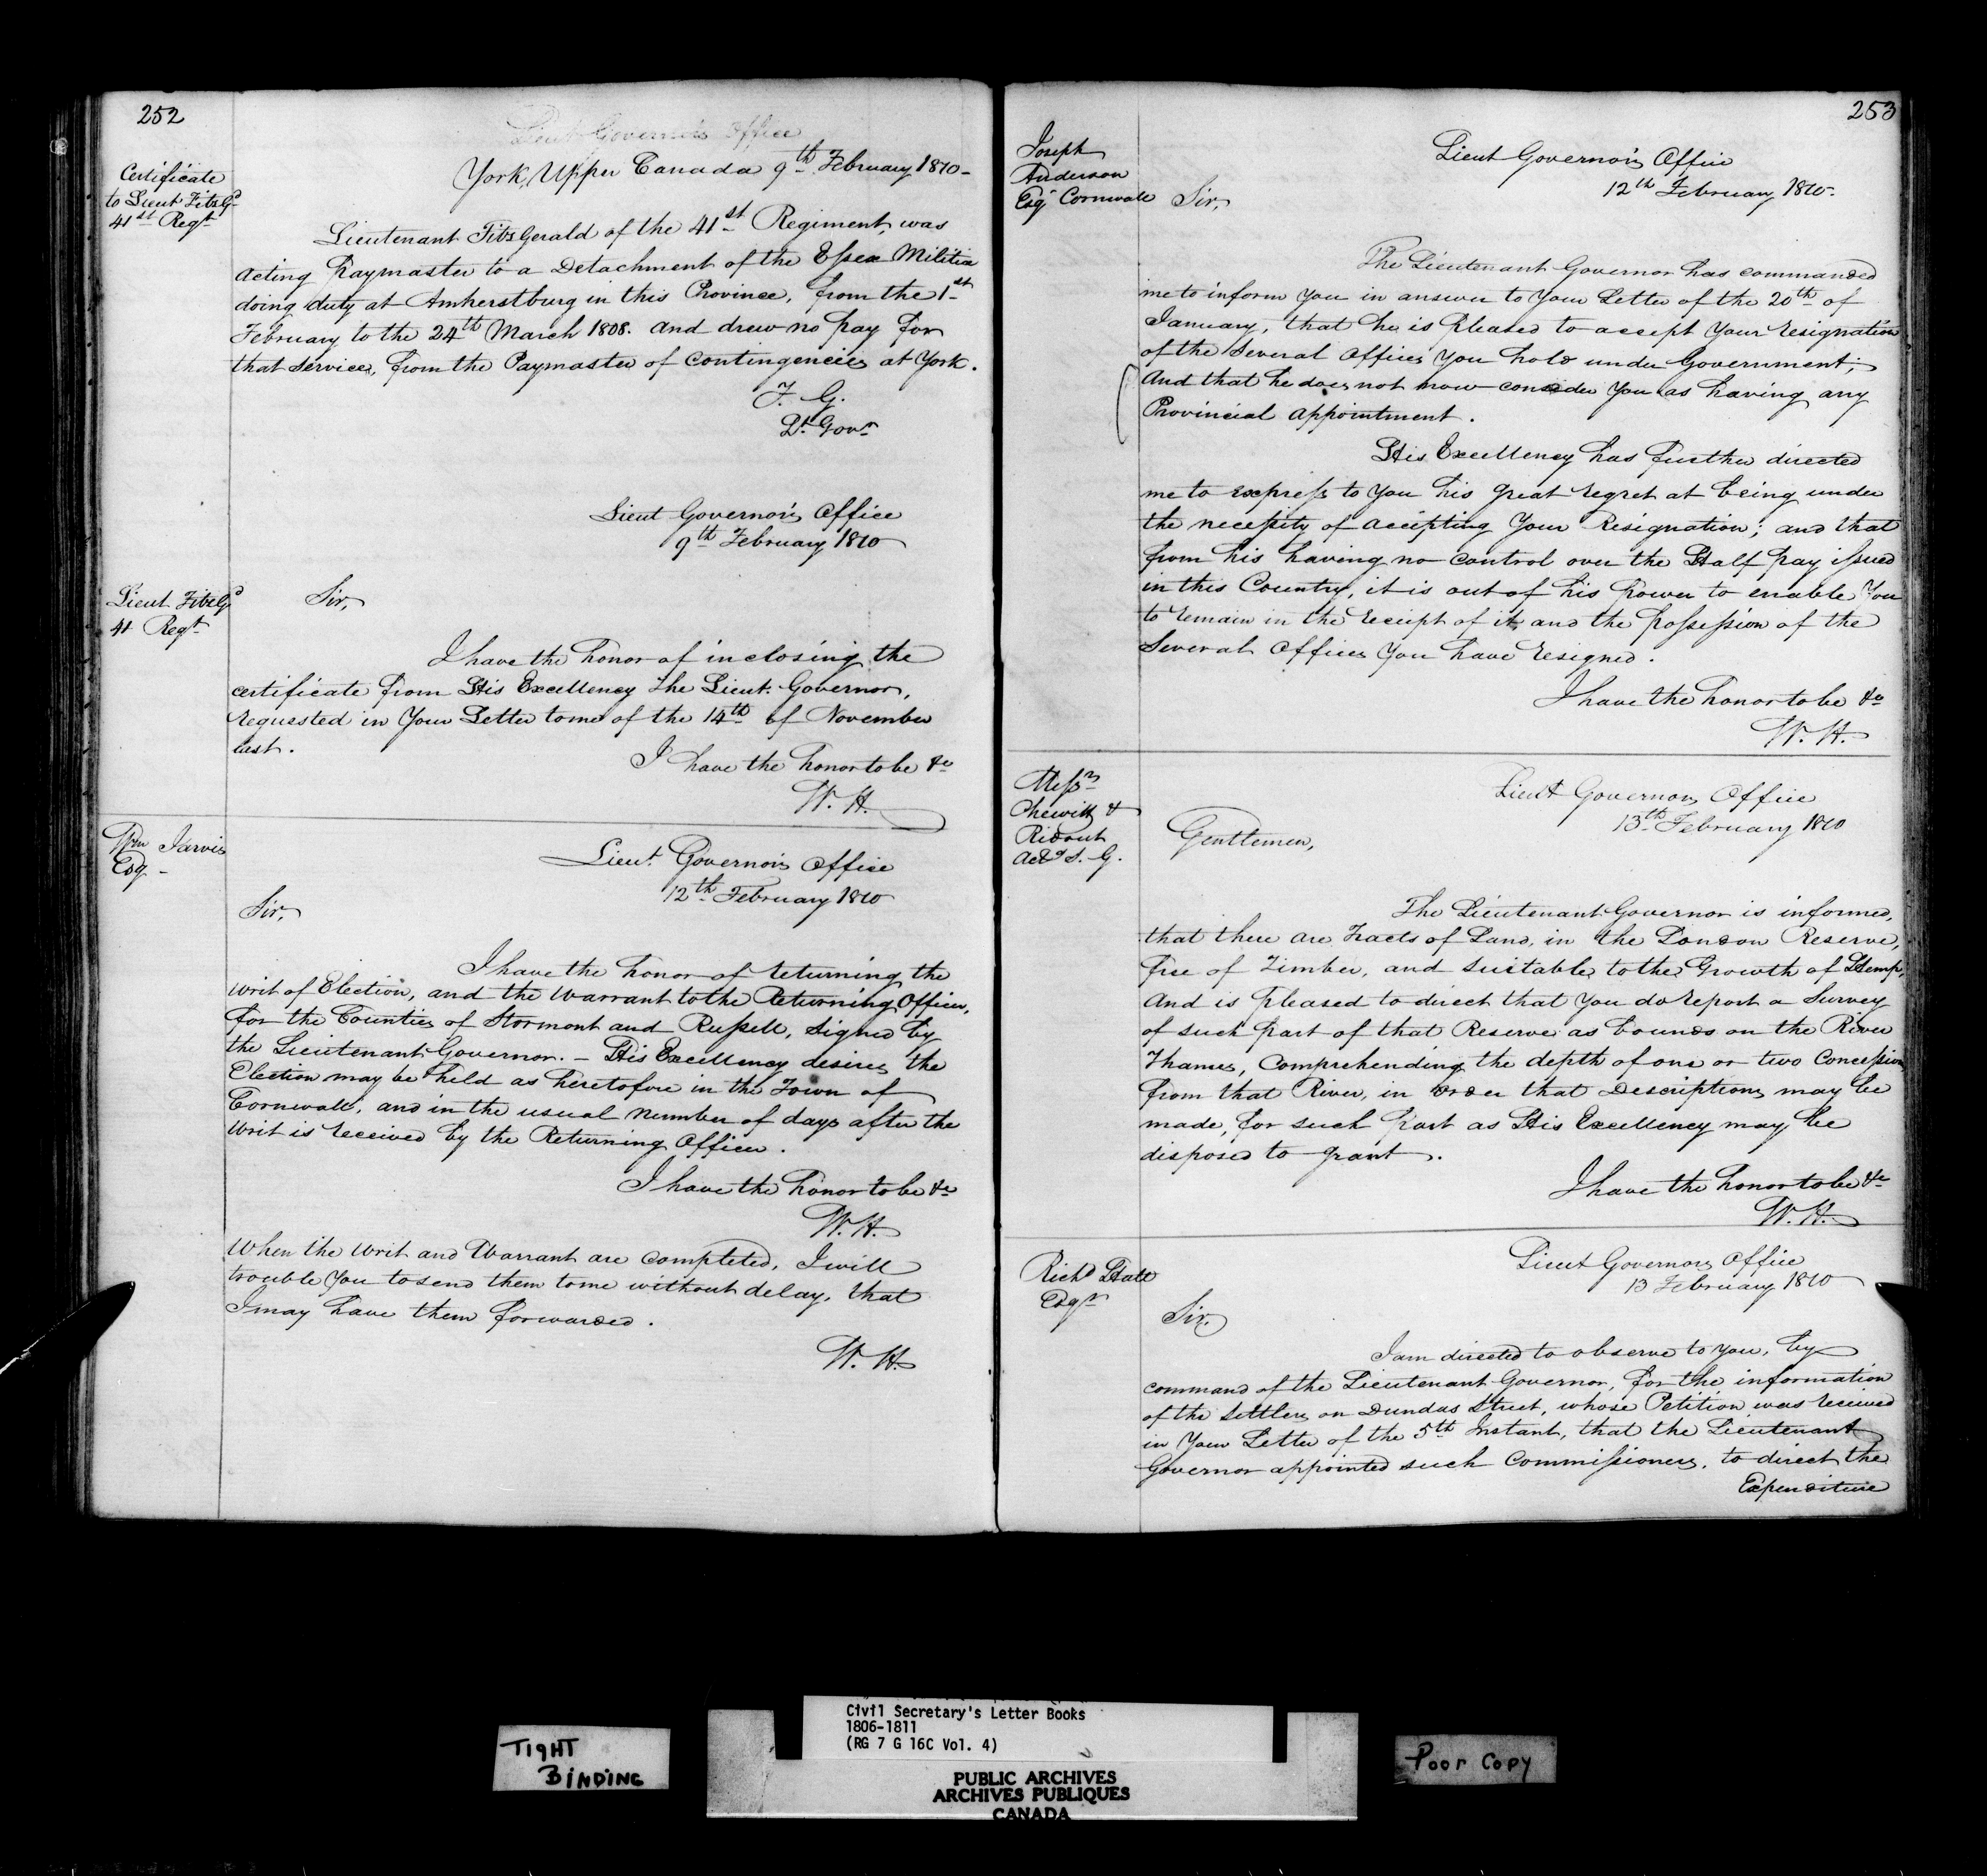 252
Lieut Governor's Office
York, Upper Canada 9th February 1810-
Certificate
to Lieut FitzGd
41st Regt
Lieutenant FitzGerald of the 41st Regiment, was
acting Paymaster to a Detachment of the Essex Militia
doing duty at Amherstburg in this Province, from the 1st
February to the 24th March 1808. and drew no pay for
that service, from the Paymaster of Contingencies at York.
F. G.
Lt. Govr
Lieut Governor's Office
9th February 1810
Lieut FitzGd
41 Regt
Sir,
I have the honor of inclosing the
certificate from His Excellency The Lieut. Governor,
requested in Your Letter to me of the 14th of November
last.
I have the honor to be &c
W. H.
Wm Jarvis
Esq -
Lieut. Governor's Office
12th February 1810
Sir,
I have the honor of returning the
writ of Election, and the Warrant to the Returning Officer,
for the Counties of Stormont and Russell, signed by
the Lieutenant Governor. - His Excellency desires the
Election may be held as heretofore in the Town of
Cornwall, and in the usual number of days after the
writ is received by the Returning Officer.
I have the honor to be &c
W. H.
When the writ and Warrant are completed, I will
trouble You to send them to me without delay, that
I may have them forwarded.
W. H.
253
Joseph
Anderson
Esqr Cornwall
Lieut Governor's Office
12th February 1810-
Sir,
The Lieutenant Governor has commanded
me to inform You in answer to Your Letter of the 20th of
January, that he is Pleased to accept Your resignation
of the several Offices You hold under Government;
And that he does not now consider You as having any
Provincial appointment.
His Excellency has further directed
me to express to You his great regret at being under
the necessity of accepting Your Resignation; and that
from his having no control over the Half pay issued
in this Country, it is out of his power to enable You
to remain in the receipt of it, and the possession of the
Several Offices You have resigned.
I have the honor to be &c
W. H.
Messrs
Chewitt &
Ridout
Actg S. G.
Lieut Governors Office
13th February 1810
Gentlemen,
The Lieutenant Governor is informed,
that there are Tracts of Land, in the London Reserve,
free of Timber, and suitable to the Growth of Hemp,
And is pleased to direct that You do report a Survey
of such part of that Reserve as bounds on the River
Thames, Comprehending the depth of one or two Concessions
from that River, in order that Descriptions may be
made, for such part as His Excellency may be
disposed to grant.
I have the honor to be &c
W. H.
Richd Hatt
Esqr
Lieut Governors Office
13 February 1810
Sir,
I am directed to observe to You, by
command of the Lieutenant Governor, for the information
of the settlers on Dundas Street, whose Petition was received
in Your Letter of the 5th Instant, that the Lieutenant
Governor appointed such Commissioners, to direct the
Expenditure
TIGHT
BINDING
Civil Secretary's Letter Books
1806-1811
(RG 7 G 16C Vol. 4)
PUBLIC ARCHIVES
ARCHIVES PUBLIQUES
CANADA
Poor Copy